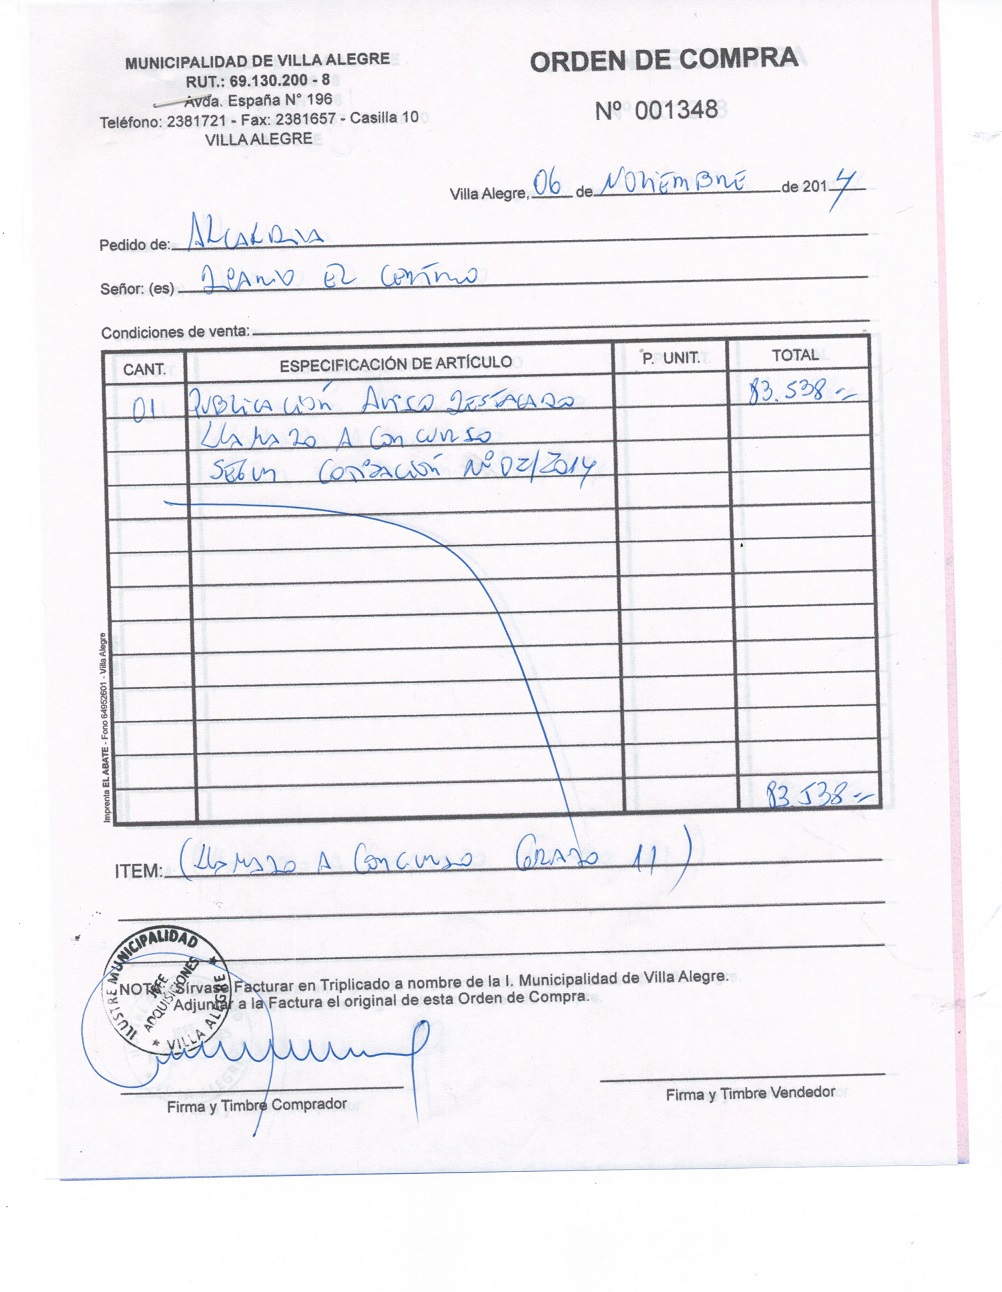 MUNICIPALIDAD DE VILLA ALEGRE
RUT.: 69.130.200 - 8
Avda. España N° 196
Teléfono: 2381721 - Fax: 2381657 - Casilla 10
VILLA ALEGRE
ORDEN DE COMPRA
Nº 001348
Villa Alegre, 06 de NOVIEMBRE de 2014
Pedido de: ALCALDIA
Señor: (es) DIARIO EL CENTRO
Condiciones de venta:
CANT. ESPECIFICACIÓN DE ARTÍCULO P. UNIT. TOTAL
01 PUBLICACIÓN AVISO DESTACADO 83.538.-
LLAMADO A CONCURSO
SEGUN COTIZACIÓN Nº 02/2014
83.538.-
Imprenta EL ABATE - Fono 64952601 - Villa Alegre
ITEM: (LLAMADO A CONCURSO GRADO 11)
NOTA: Sírvase Facturar en Triplicado a nombre de la I. Municipalidad de Villa Alegre.
Adjuntar a la Factura el original de esta Orden de Compra.
ILUSTRE MUNICIPALIDAD
JEFE
ADQUISICIONES
* VILLA ALEGRE *
Firma y Timbre Comprador
Firma y Timbre Vendedor